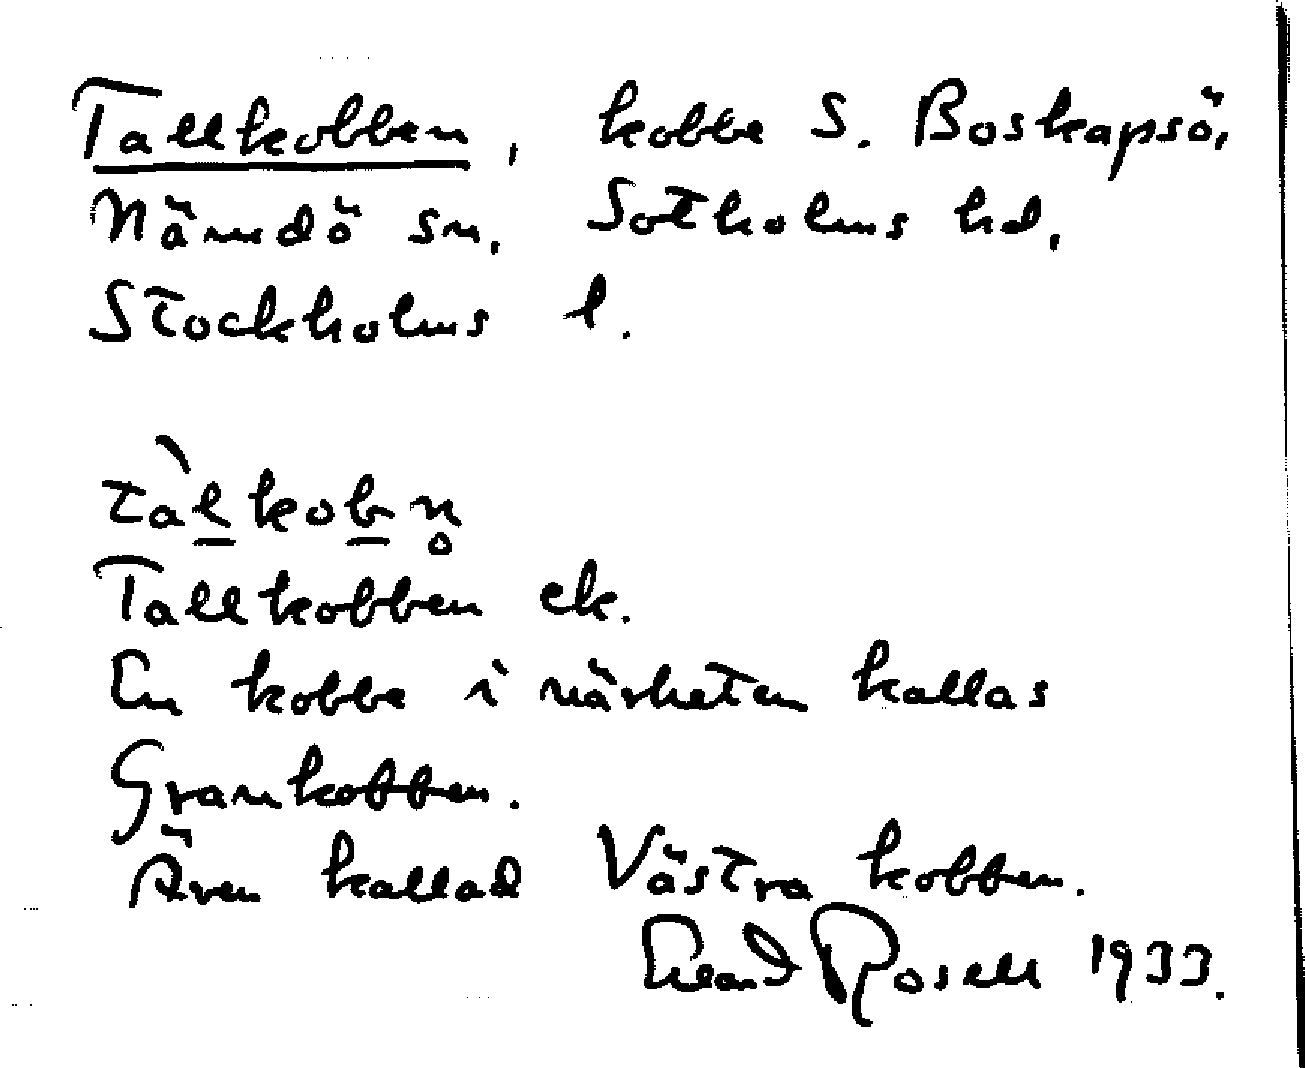 Tallkobben, kobbe S. Boskapsö,
Nämdö sn, Sotholms hd,
Stockholms l.
tàl̲kob̲n̥
Tallkobben ek.
En kobbe i närheten kallas
Grankobben.
Även kallad Västra kobben.
Erland Rosell 1933.